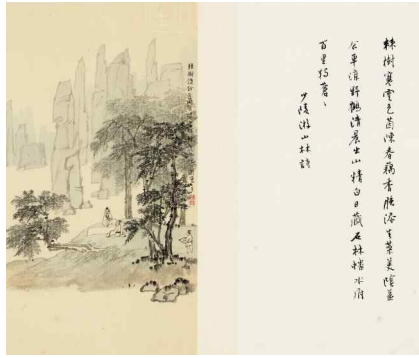 棘樹寒雲色茵陳春藕香脆添生菜美陰益
食單涼野鶴清晨出山精白日藏石林蟠水府
百里獨蒼〻
少陵游山林詩